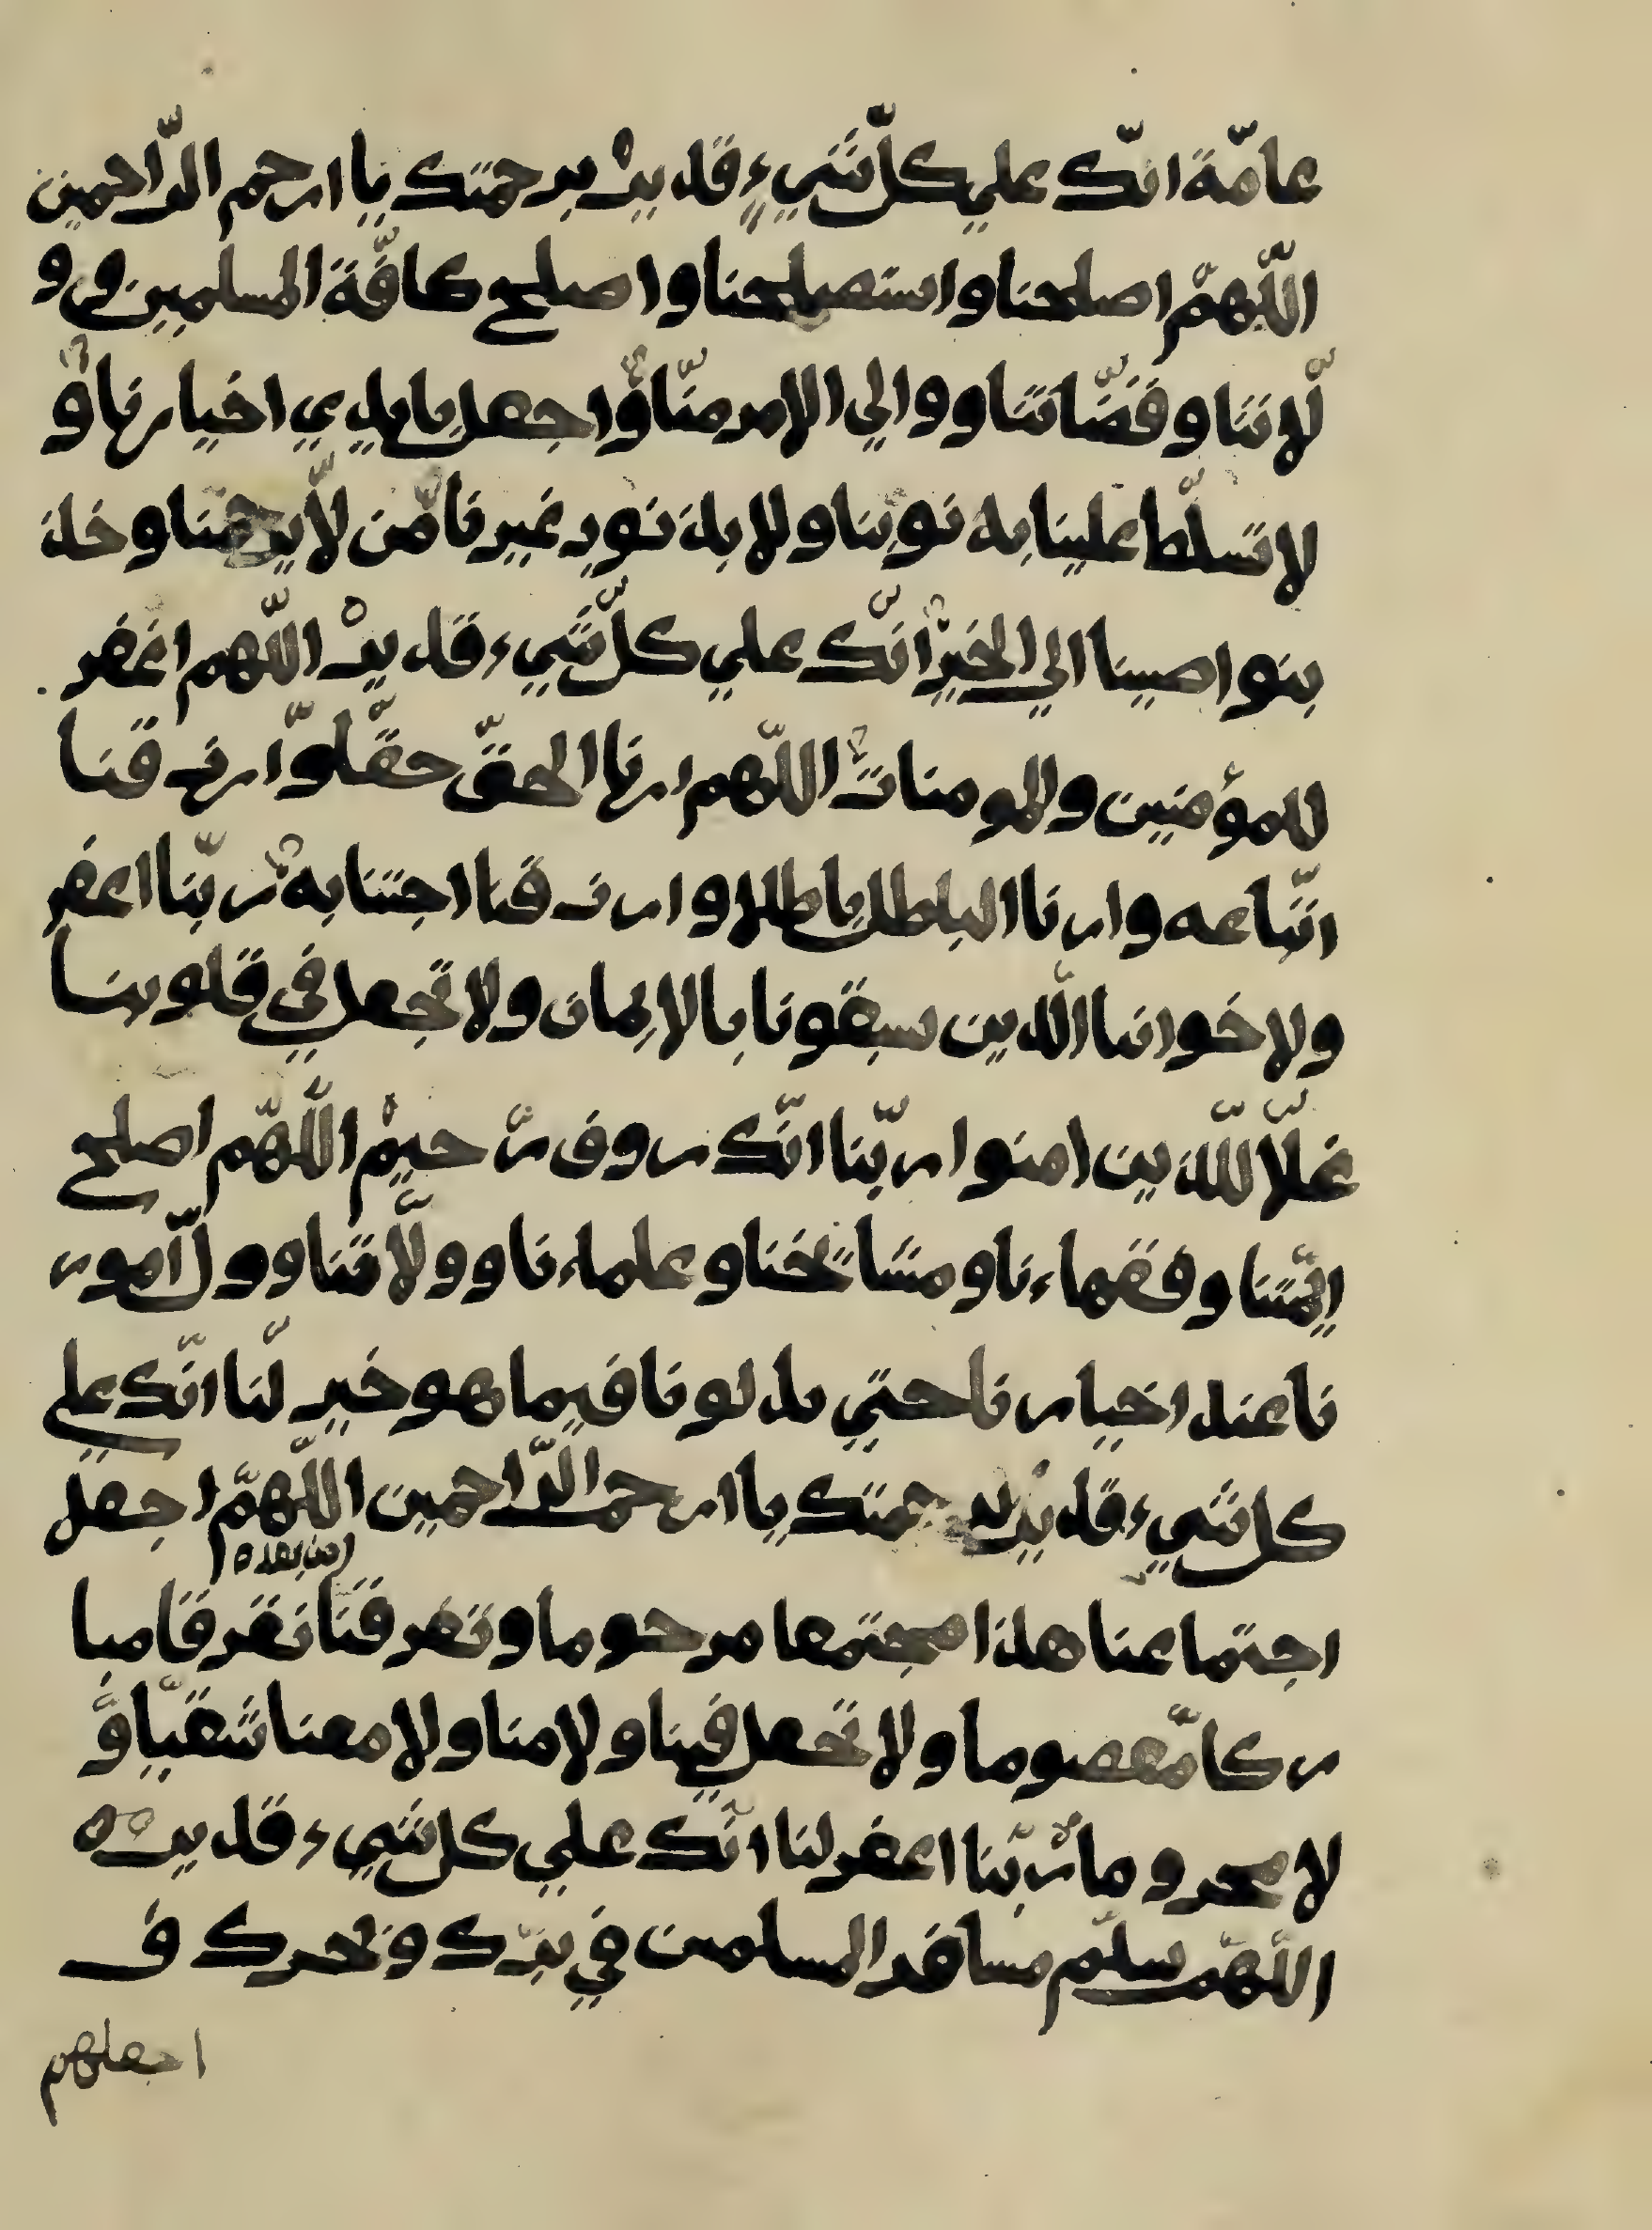 عامّة انّك علي كلّ شيء قدير برحمتك يا ارحم الرّاحمين
اللّهمّ اصلحنا واستصلحنا واصلح كافّة المسلمين و و
لّاتنا وقضّاتنا ووالي الامر منّا وّاجعل بايدي اخيارنا و
لا تسلّط علينا بذنوبنا ولا بذنوب غيرنا مّن لّا يرحمنا وخذ
بنواصينا الي الخير انّك علي كلّ شيء قدير اللّهم اغفر
للمؤمنين والمومنات اللّهم ارنا الحقّ حقّا وّارزقنا
اتّباعه وارنا الباطل باطلا وارزقنا اجتنابه ربّنا اغفر
ولاخواننا الّذين سبقونا بالايمان ولا تجعل في قلوبنا
غلّا لّلّذين امنوا ربّنا انّك روف رّحيم اللّهمّ اصلح
ايمّتنا وفقهاءنا ومشائخنا وعلماءنا وولّاتنا وول امور
نا عند اخيارنا حتي يدلونا فيما هو خير لّنا انّك علي
كل شيء قدير برحمتك يا ارحم الرّاحمين اللّهمّ اجعل
اجتماعنا هذا مجتمعا مرحوما وتفرقنا من بعده تفرقا مبا
ركا مّعصوما ولا تجعل فينا ولا منا ولا معنا شقيّا وّ
لا محروما ربّنا اغفر لنا انّك علي كل شيء قدير ه
اللّهمّ سلّم مسافر المسلمين في برّك وبحرك و
اجعلهم